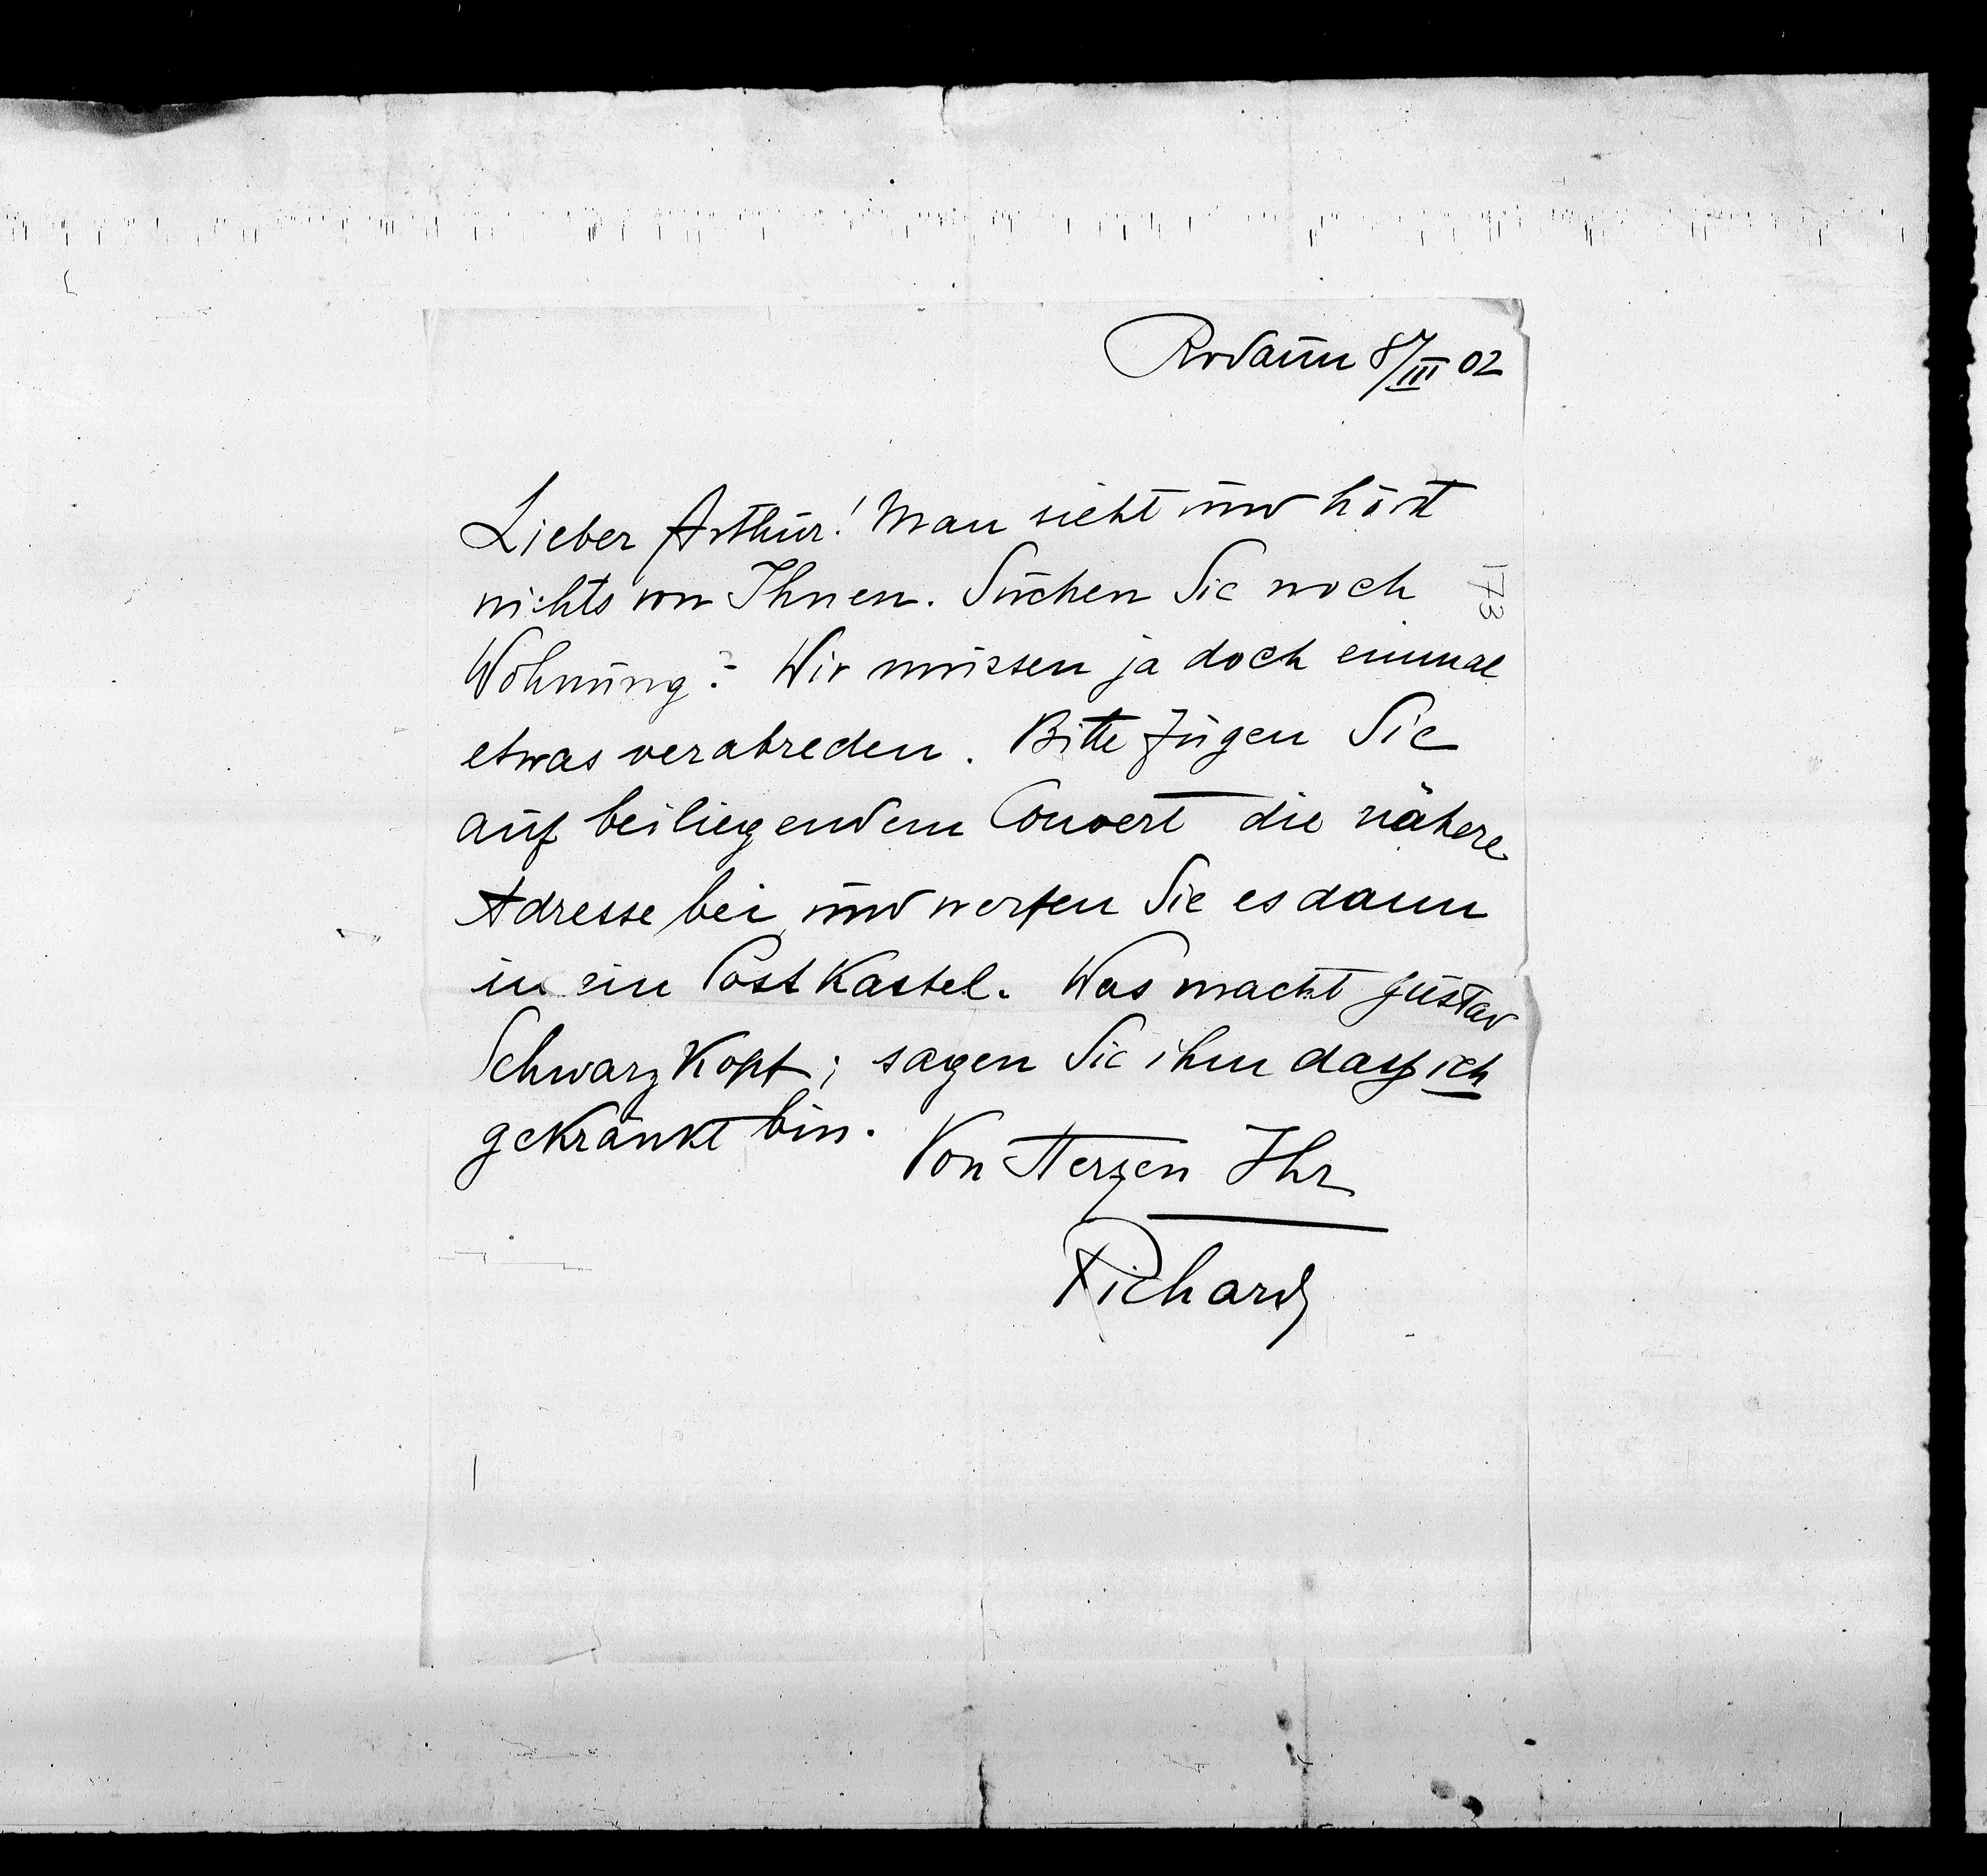 Rodaun 8/III 02
Lieber Arthur! Man sieht und hört
nichts von Ihnen. Suchen Sie noch
173
Wohnung? Wir müssen ja doch einmal
etwas verabreden. Bitte fügen Sie
auf beiliegendem Couvert die nähere
Adresse bei und werfen Sie es dann
in ein Postkastel. Was macht Gustav
Schwarzkopf; sagen Sie ihm dass ich
gekränkt bin.
Von Herzen Ihr
Richard